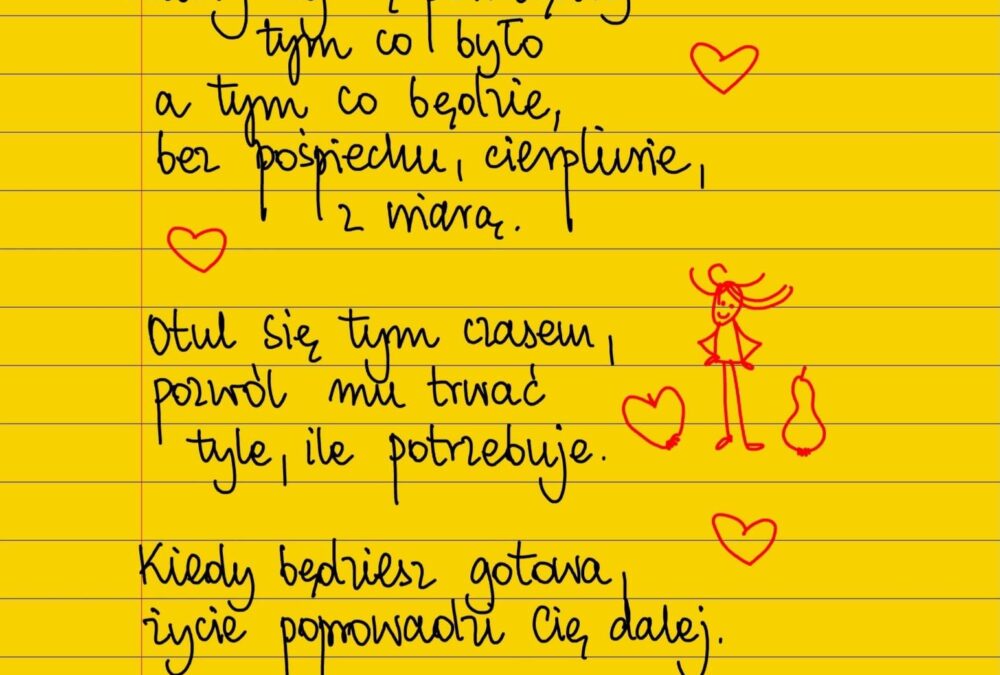 tym co było
a tym co będzie,
bez pośpiechu, cierpliwie,
z miarą.
Otul się tym czasem,
pozwól mu trwać
tyle, ile potrzebuje.
Kiedy będziesz gotowa,
życie poprowadzi Cię dalej.